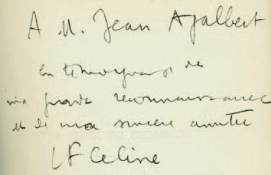 A M. Jean Ajalbert
En témoignage de
ma grande reconnaissance
et de mon sincère amitié
LF Celine